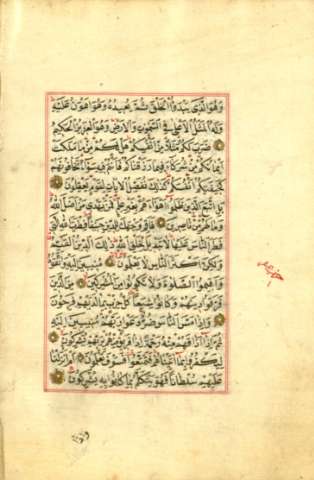 وَهُوَ الَّذِي يَبْدَؤُا الْخَلْقَ ثُمَّ يُعِيدُهُ وَهُوَ أَهْوَنُ عَلَيْهِ
وَلَهُ الْمَثَلُ الْأَعْلَى فِي السَّمٰوَاتِ وَالْأَرْضِ وَهُوَ الْعَزِيزُ الْحَكِيمُ
ضَرَبَ لَكُمْ مَثَلًا مِنْ أَنْفُسِكُمْ هَلْ لَكُمْ مِنْ مَا مَلَكَتْ
أَيْمَانُكُمْ مِنْ شُرَكَاءَ فِي مَا رَزَقْنَاكُمْ فَأَنْتُمْ فِيهِ سَوَاءٌ تَخَافُونَهُمْ
كَخِيفَتِكُمْ أَنْفُسَكُمْ كَذٰلِكَ نُفَصِّلُ الْآيَاتِ لِقَوْمٍ يَعْقِلُونَ
بَلِ اتَّبَعَ الَّذِينَ ظَلَمُوا أَهْوَاءَهُمْ بِغَيْرِ عِلْمٍ فَمَنْ يَهْدِي مَنْ أَضَلَّ اللّٰهُ
وَمَا لَهُمْ مِنْ نَاصِرِينَ فَأَقِمْ وَجْهَكَ لِلدِّينِ حَنِيفًا فِطْرَتَ اللّٰهِ الَّتِي
فَطَرَ النَّاسَ عَلَيْهَا لَا تَبْدِيلَ لِخَلْقِ اللّٰهِ ذٰلِكَ الدِّينُ الْقَيِّمُ
وَلٰكِنَّ أَكْثَرَ النَّاسِ لَا يَعْلَمُونَ مُنِيبِينَ إِلَيْهِ وَاتَّقُوهُ
وَأَقِيمُوا الصَّلٰوةَ وَلَا تَكُونُوا مِنَ الْمُشْرِكِينَ مِنَ الَّذِينَ
فَرَّقُوا دِينَهُمْ وَكَانُوا شِيَعًا كُلُّ حِزْبٍ بِمَا لَدَيْهِمْ فَرِحُونَ
وَإِذَا مَسَّ النَّاسَ ضُرٌّ دَعَوْا رَبَّهُمْ مُنِيبِينَ إِلَيْهِ
ثُمَّ إِذَا أَذَاقَهُمْ مِنْهُ رَحْمَةً إِذَا فَرِيقٌ مِنْهُمْ بِرَبِّهِمْ يُشْرِكُونَ
لِيَكْفُرُوا بِمَا آتَيْنَاهُمْ فَتَمَتَّعُوا فَسَوْفَ تَعْلَمُونَ أَمْ أَنْزَلْنَا
عَلَيْهِمْ سُلْطَانًا فَهُوَ يَتَكَلَّمُ بِمَا كَانُوا بِهِ يُشْرِكُونَ